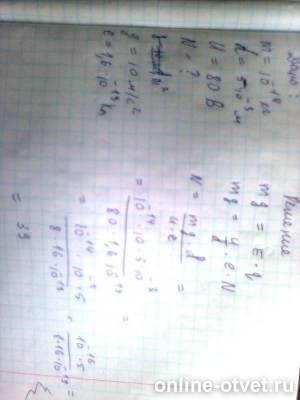 Дано:
m = 10⁻¹⁴ кг
d = 5·10⁻³ м
U = 80 В
N - ?
g = 10 м/с²
e = 1,6·10⁻¹⁹ Кл
Решение
mg = E·q
mg = U/d · e·N
N = mg·d / U·e =
= 10⁻¹⁴·10·5·10⁻³ / 80·1,6·10⁻¹⁹ =
= 10⁻¹⁴·10⁻²·5 / 8·16·10⁻¹⁹ = 10⁻¹⁶·5 / 8·16·10⁻¹⁹ =
= 39
online-otvet.ru